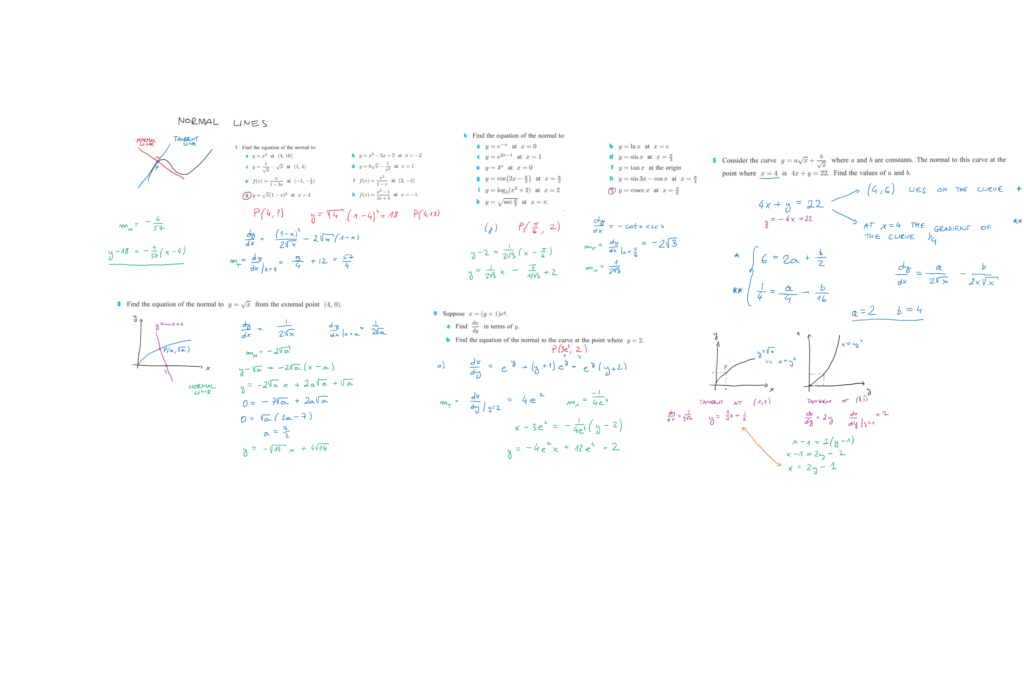 NORMAL LINES
NORMAL LINE
TANGENT LINE
P
1 Find the equation of the normal to:
a y = x² at (4, 16)
b y = x³ − 5x + 2 at x = −2
c y = 5/√x − √x at (1, 4)
d y = 8√x − 1/x² at x = 1
f f(x) = x²/(1−x) at (2, −4)
g y = √x(1−x)² at x = 4
h f(x) = (x²−1)/(2x+3) at x = −1.
P(4,?)
y = √4 (1−4)² = 18
P(4,18)
dy/dx = (1−x)²/2√x − 2√x(1−x)
m_T = dy/dx|x=4 = 9/4 + 12 = 57/4
m_N = −4/57
y−18 = −4/57 (x−4)
4 Find the equation of the normal to:
b y = ln x at x = e
c y = e^(2x−1) at x = 1
e y = 4^x at x = 0
f y = tan x at the origin
i y = log₃(x² + 2) at x = 2
j y = cosec x at x = π/6
(j) P(π/6, 2)
dy/dx = −cot x csc x
m_T = dy/dx|x=π/6 = −2√3
m_N = 1/2√3
y−2 = 1/2√3 (x − π/6)
y = 1/2√3 x − π/12√3 + 2
5 Consider the curve y = a√x + b/√x where a and b are constants. The normal to this curve at the
point where x = 4 is 4x + y = 22. Find the values of a and b.
4x + y = 22
y = −4x + 22
(4,6) LIES ON THE CURVE *
AT x=4 THE GRADIENT OF THE CURVE 1/4 **
* 6 = 2a + b/2
** 1/4 = a/4 − b/16
dy/dx = a/2√x − b/2x√x
a = 2 b = 4
8 Find the equation of the normal to y = √x from the external point (4, 0).
y
P(a, √a)
x
NORMAL LINE
dy/dx = 1/2√x
dy/dx|x=a = 1/2√a
m_N = −2√a
y−√a = −2√a (x−a)
y = −2√a x + 2a√a + √a
0 = −7√a + 2a√a
0 = √a (2a−7)
a = 7/2
y = −√14 x + 4√14
9 Suppose x = (y + 1)e^y.
a Find dx/dy in terms of y.
b Find the equation of the normal to the curve at the point where y = 2.
P(3e², 2)
a) dx/dy = e^y + (y+1)e^y = e^y (y+2)
m_T = dx/dy|y=2 = 4e²
m_N = −1/4e²
x − 3e² = −1/4e² (y−2)
y = −4e² x + 12e⁴ + 2
y
y=√x
=> x=y²
P
x
x
x=y²
y
TANGENT AT (1,1)
dy/dx = 1/2√x
y = 1/2 x + 1/2
TANGENT AT (1,1)
dx/dy = 2y
dx/dy|y=1 = 2
x−1 = 2(y−1)
x−1 = 2y − 2
x = 2y − 1